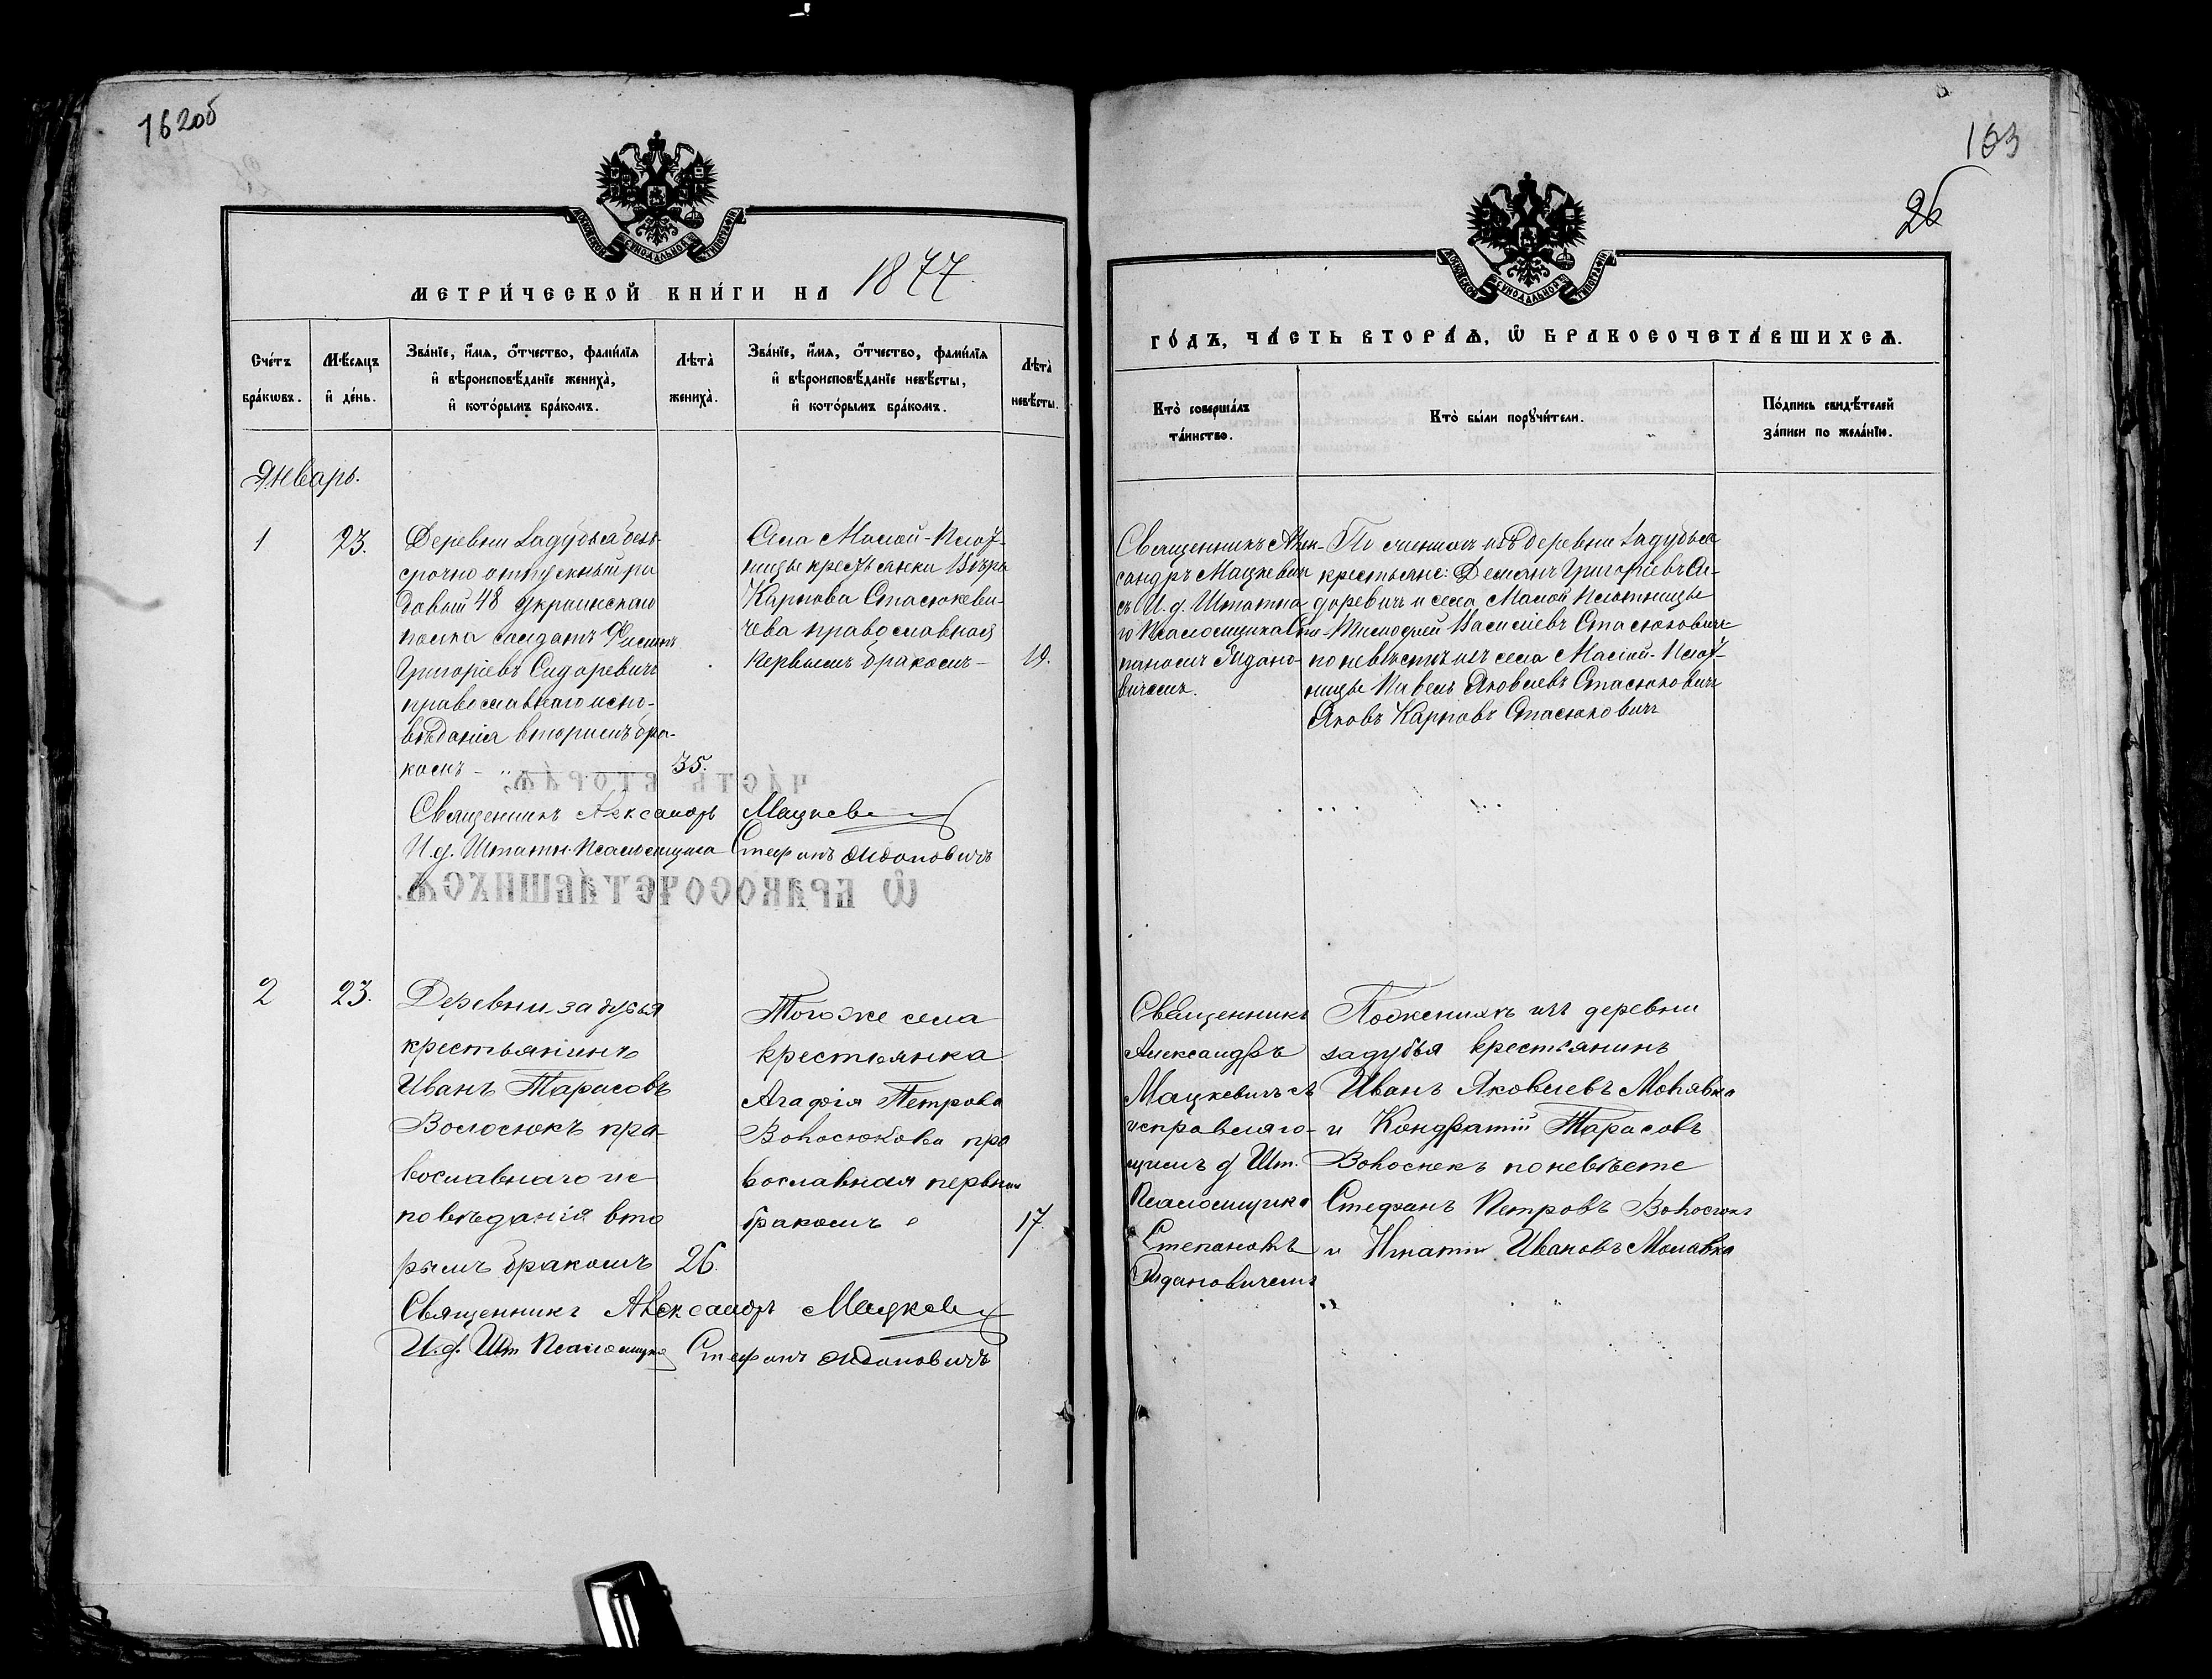 162об
МОСКОВСКОЙ СѴНОДАЛЬНОЙ ТИПОГРАФІИ
МЕТРИ́ЧЕСКОЙ КНИ́ГИ НА 1877.
Сче́тъ бра́кѡвъ.
Мѣ́сяцъ и҆ де́нь.
Зва́нїе, и҆́мѧ, ѻ҆́тчество, фами́лїѧ и҆ вѣроисповѣ́данїе жениха̀, и҆ кото́рымъ бра́комъ.
Лѣ́та жениха̀.
Зва́нїе, и҆́мѧ, ѻ҆́тчество, фами́лїѧ и҆ вѣроисповѣ́данїе невѣ́сты, и҆ кото́рымъ бра́комъ.
Лѣ́та невѣ́сты.
Январь.
1
23.
Деревни Задубья без-
срочно отпускный ря
довый 48 Украинскаго
полка солдатъ
Григоріевъ Сидоревичъ
православнаго испо-
вѣданія вторымъ бра-
комъ - " —
35.
Села Малой-Плот-
ницы крестьянка Вѣра
Карпова Стасюкеви-
чева православная
первымъ бракомъ -
19.
Священникъ Александръ Мацкев
И. д. Штатн. Псаломщика Стефанъ Ждановичъ
2
23.
Деревни Задубья
крестьянинъ
Иванъ Тарасовъ
Волосюкъ пра-
вославнаго ис
повѣданія вто
рымъ бракомъ
26.
Того же села
крестьянка
Агафія Петрова
Волосюкова пра
вославная первым
бракомъ
17.
Священникъ Александръ Мацкев
И. д. Шт Псаломщика Стефанъ Ждановичъ
163
26
МОСКОВСКОЙ СѴНОДАЛЬНОЙ ТИПОГРАФІИ
ГО́ДЪ, ЧА́СТЬ ВТОРА́Ѧ, Ѡ҆ БРАКОСОЧЕТА́ВШИХСѦ.
Кто̀ соверша́лъ та́инство.
Кто̀ бы́ли порꙋчи́тели.
По́дпись свидѣ́телей за́писи по жела́нїю.
Священникъ Алек-
сандръ Мацкевич
съ И. д. Штатна
го Псаломщика Сте
паномъ Ждано-
вичемъ.
По женихѣ изъ деревни Задубья
крестьяне: Деміянъ Григоріевъ Си-
доревичъ и села Малой Плотницы
Тимофей Василіевъ Стасюковичъ
по невѣстѣ изъ села Малой-Плот-
ницы Павелъ Яковлевъ Стасюковичъ
Яковъ Карповъ Стасюковичъ
Священникъ
Александръ
Мацкевичъ съ
исправляю-
щимъ д Шт.
Псаломщика
Степаномъ
Ждановичемъ
По женихѣ изъ деревни
Задубья крестьянинъ
Иванъ Яковлевъ Молявка
и Кондратій Тарасовъ
Волосюкъ по невѣсте
Стефанъ Петровъ Волосюкъ
и Игнатій Ивановъ Молявка